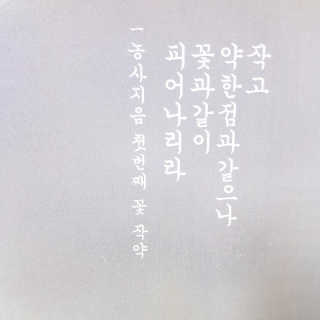 작고
약한 짐과 같으나
꽃과 같이
피어나리라
- 농사지음 첫번째 꽃 작약